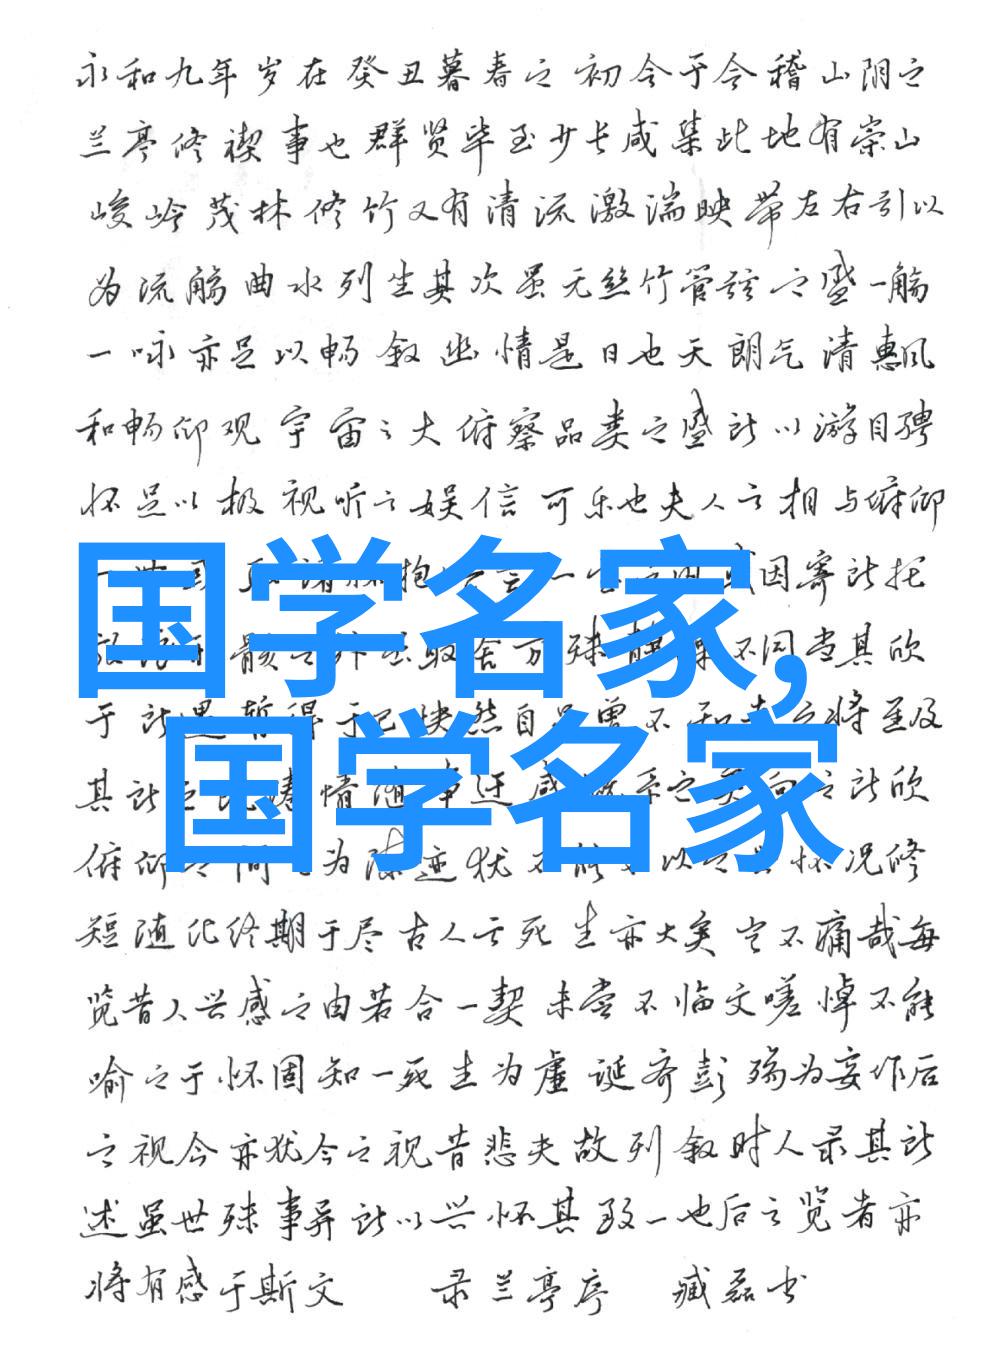 永和九年岁在癸丑暮春之初会于会稽山阴之
兰亭修禊事也群贤毕至少长咸集此地有崇山
峻岭茂林修竹又有清流激湍映带左右引以
为流觞曲水列坐其次虽无丝竹管弦之盛一觞
一咏亦足以畅叙幽情是日也天朗气清惠风
和畅仰观宇宙之大俯察品类之盛所以游目骋
怀足以极视听之娱信可乐也夫人之相与俯仰
抱 一 因寄所托
骸之 取舍万殊 不同当其欣
于所遇暂得于己快然自足曾不知老之将至及
其所之既 情随事迁感 系之 向之所欣
俯仰之间 为陈迹犹不 以之 怀况修
短随化终期于尽古人云死生亦大矣岂不痛哉每
览昔人兴感之由若合一契未尝不临文嗟悼不能
喻之于怀固知一死生为虚诞齐彭殇为妄作后
之视今亦犹今之视昔悲夫故列叙时人录其所
述虽世殊事异所以兴怀其致一也后之览者亦
将有感于斯文 录兰亭序 臧磊书
国学名家,
国学名家